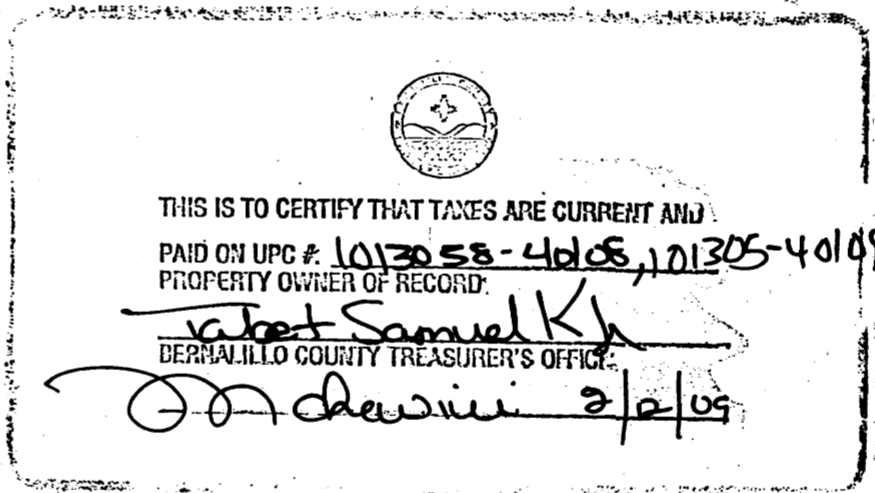 THIS IS TO CERTIFY THAT TAXES ARE CURRENT AND
PAID ON UPC #: 1013058-40108, 101305-40109
PROPERTY OWNER OF RECORD:
Tabet Samuel K Jr
BERNALILLO COUNTY TREASURER'S OFFICE:
2/12/09